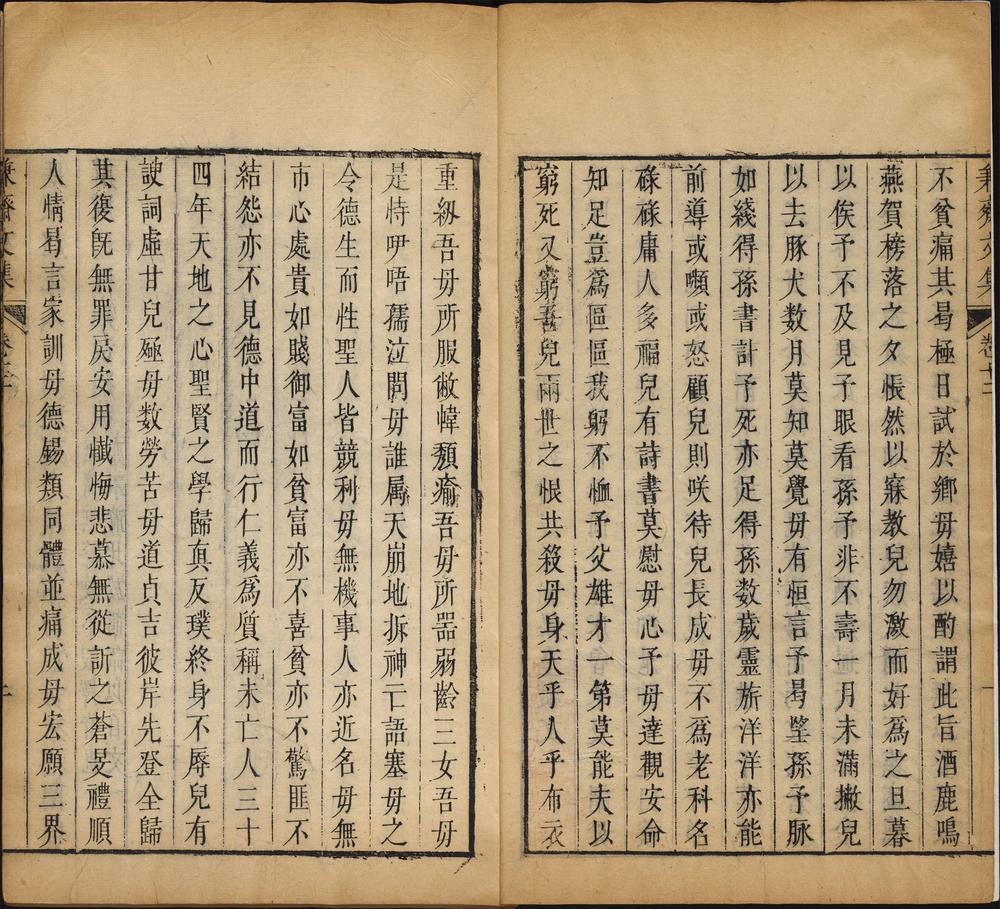 兼齋文集 卷十二 一
不貧痛其曷極日試於鄉毋嬉以酌謂此旨酒鹿鳴
燕賀榜落之夕悵然以寐教兒勿激而好爲之旦暮
以俟予不及見子眼看孫予非不壽一月未滿撇兒
以去豚犬数月莫知莫覺毋有恒言予曷望孫予脉
如綫得孫書計予死亦足得孫数歲靈旂洋洋亦能
前導或嚬或怒顧兒則咲待兒長成毋不爲老科名
碌碌庸人多福兒有詩書莫慰毋心予毋達觀安命
知足豈爲區區我躬不恤予父雄才一第莫能夫以
窮死又窮吾兒兩世之恨共殺毋身天乎人乎布衣
重級吾毋所服敝幃頹牗吾毋所器弱齡三女吾毋
是恃吚唔孺泣問毋誰属天崩地拆神亡語塞毋之
令德生而性聖人皆競利毋無機事人亦近名毋無
市心處貴如賤御富如貧富亦不喜貧亦不驚匪不
結怨亦不見德中道而行仁義爲質稱未亡人三十
四年天地之心聖賢之學歸眞反璞終身不辱兒有
諛詞虛甘兒殛毋数勞苦毋道貞吉彼岸先登全歸
其復旣無罪戾安用懺悔悲慕無從訴之蒼旻禮順
人情曷言家訓毋德錫類同體並痛成毋宏願三界
兼齋文集